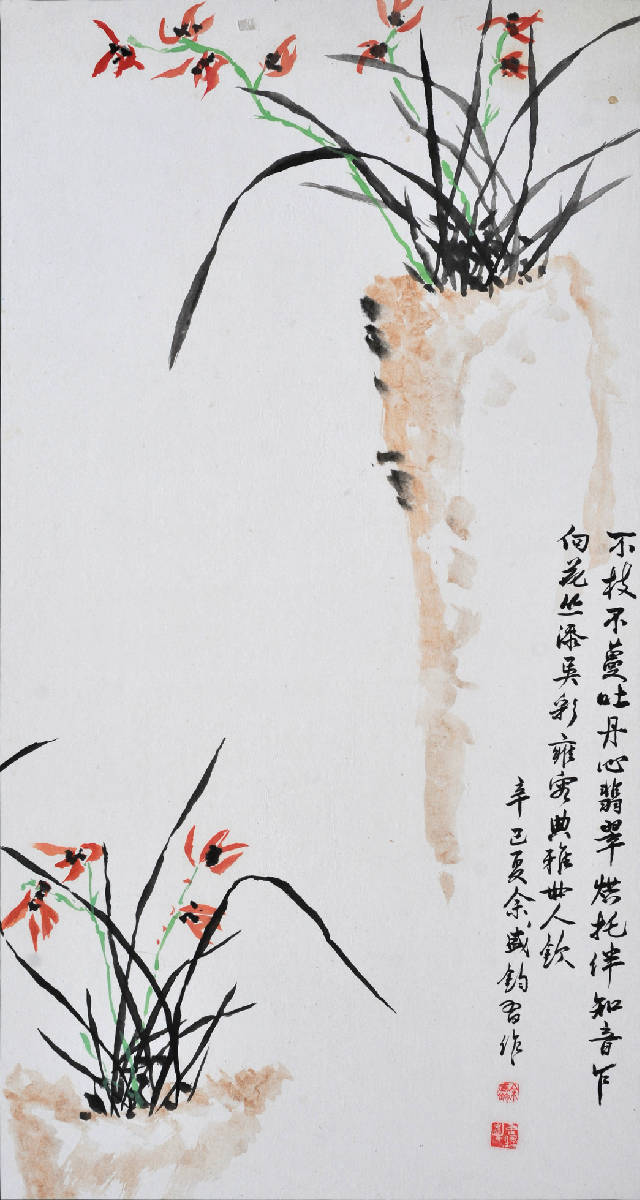 不枝不蔓吐丹心翡翠烘托伴知音乍
向花丛添异彩雍容典雅世人钦
辛巳夏余盛钧习作